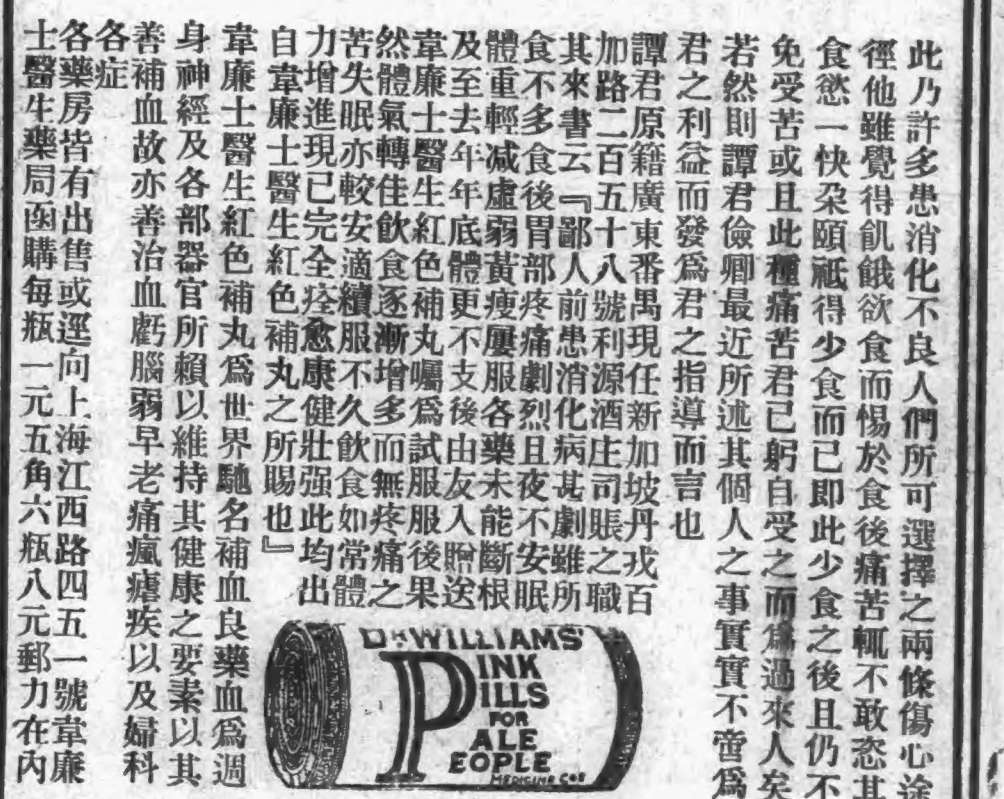 此乃許多患消化不良人們所可選擇之兩條傷心途
徑他雖覺得飢餓欲食而惕於食後痛苦輒不敢恣其
食慾一快朶頤祗得少食而已即此少食之後且仍不
免受苦或且此種痛苦君已躬自受之而爲過來人矣
若然則譚君儉卿最近所述其個人之事實實不啻爲
君之利益而發爲君之指導而言也
譚君原籍廣東番禺現任新加坡丹戎百
加路二百五十八號利源酒庄司賬之職
其來書云『鄙人前患消化病甚劇雖所
食不多食後胃部疼痛劇烈且夜不安眠
體重輕减虛弱黃瘦屢服各藥未能斷根
及至去年年底體更不支後由友人贈送
韋廉士醫生紅色補丸囑爲試服服後果
然體氣轉佳飲食逐漸增多而無疼痛之
苦失眠亦較安適續服不久飲食如常體
力增進現已完全痊愈康健壯强此均出
自韋廉士醫生紅色補丸之所賜也』
韋廉士醫生紅色補丸爲世界馳名補血良藥血爲週
身神經及各部器官所賴以維持其健康之要素以其
善補血故亦善治血虧腦弱早老痛瘋瘧疾以及婦科
各症
各藥房皆有出售或逕向上海江西路四五一號韋廉
士醫生藥局函購每瓶一元五角六瓶八元郵力在內
DR WILLIAMS'
PINK
PILLS
FOR
PALE
PEOPLE
MEDICINE Co